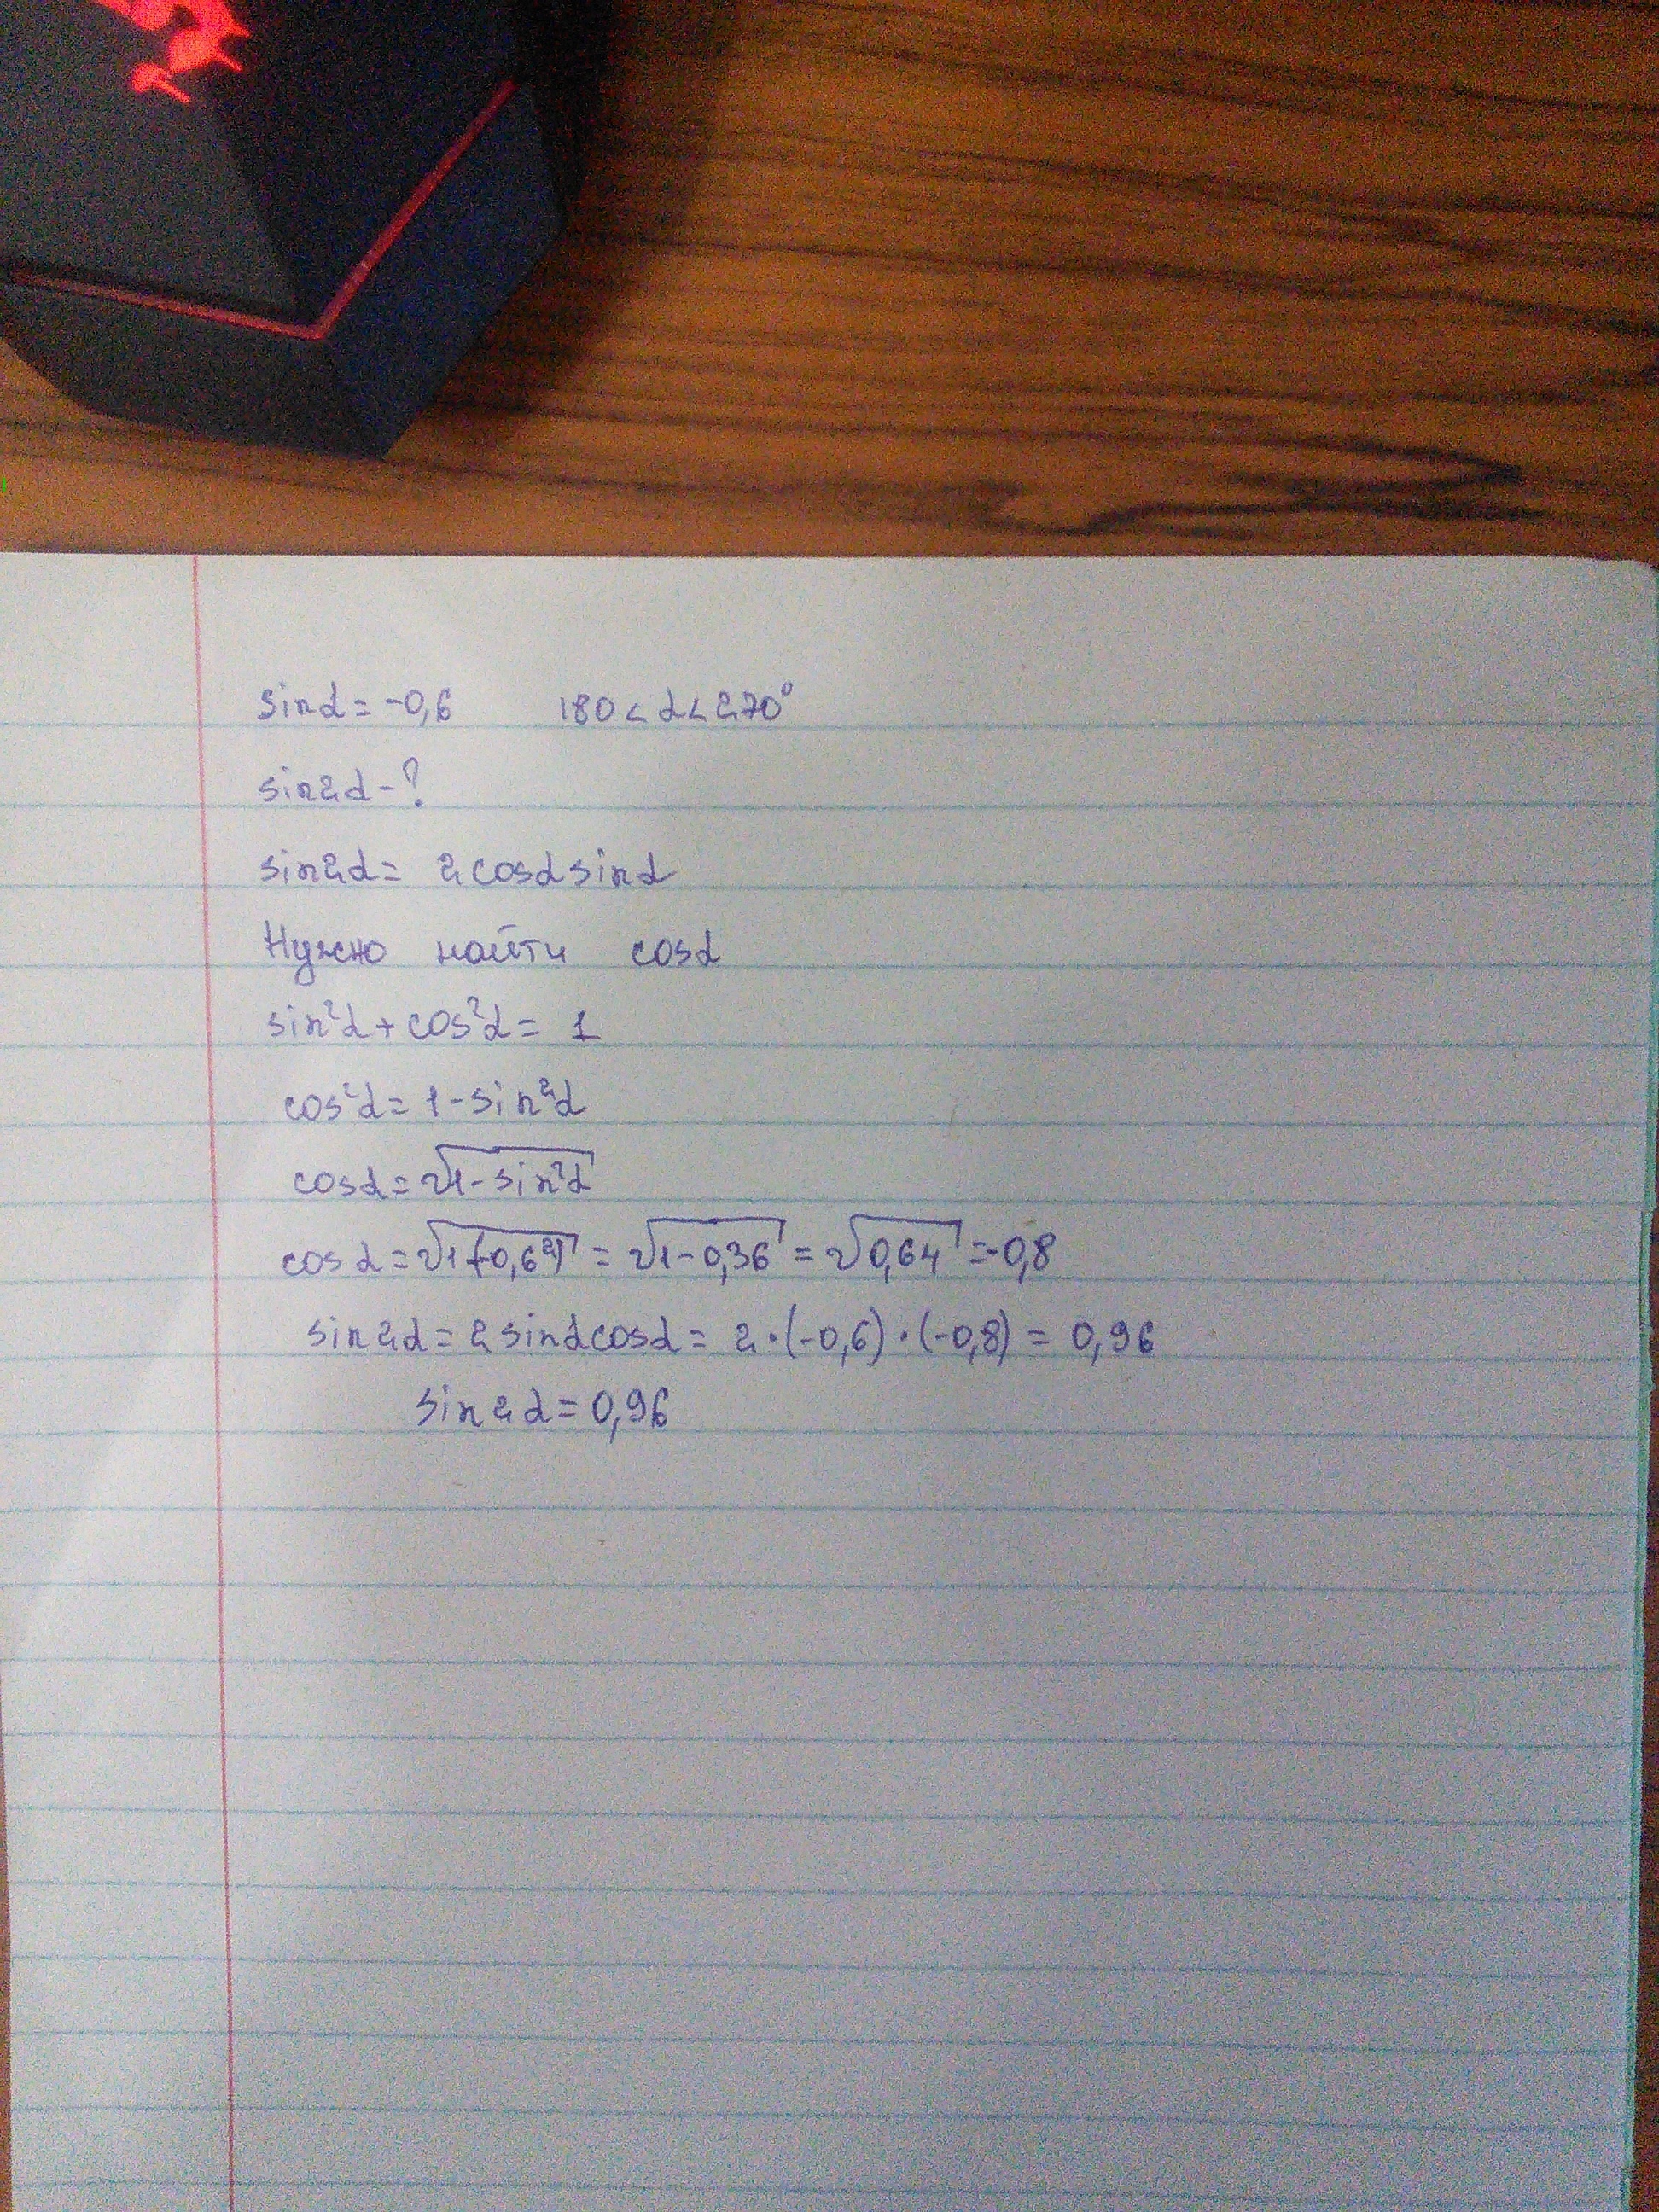 sinα = -0,6 180 < α < 270°
sin2α - ?
sin2α = 2cosαsinα
Нужно найти cosα
sin²α + cos²α = 1
cos²α = 1 - sin²α
cosα = √1 - sin²α
cosα = √1-(-0,6²) = √1 - 0,36 = √0,64 = -0,8
sin2α = 2sinαcosα = 2·(-0,6)·(-0,8) = 0,96
sin2α = 0,96